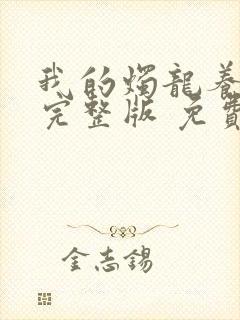 我的燭龍養
完整版 免費
金志錫